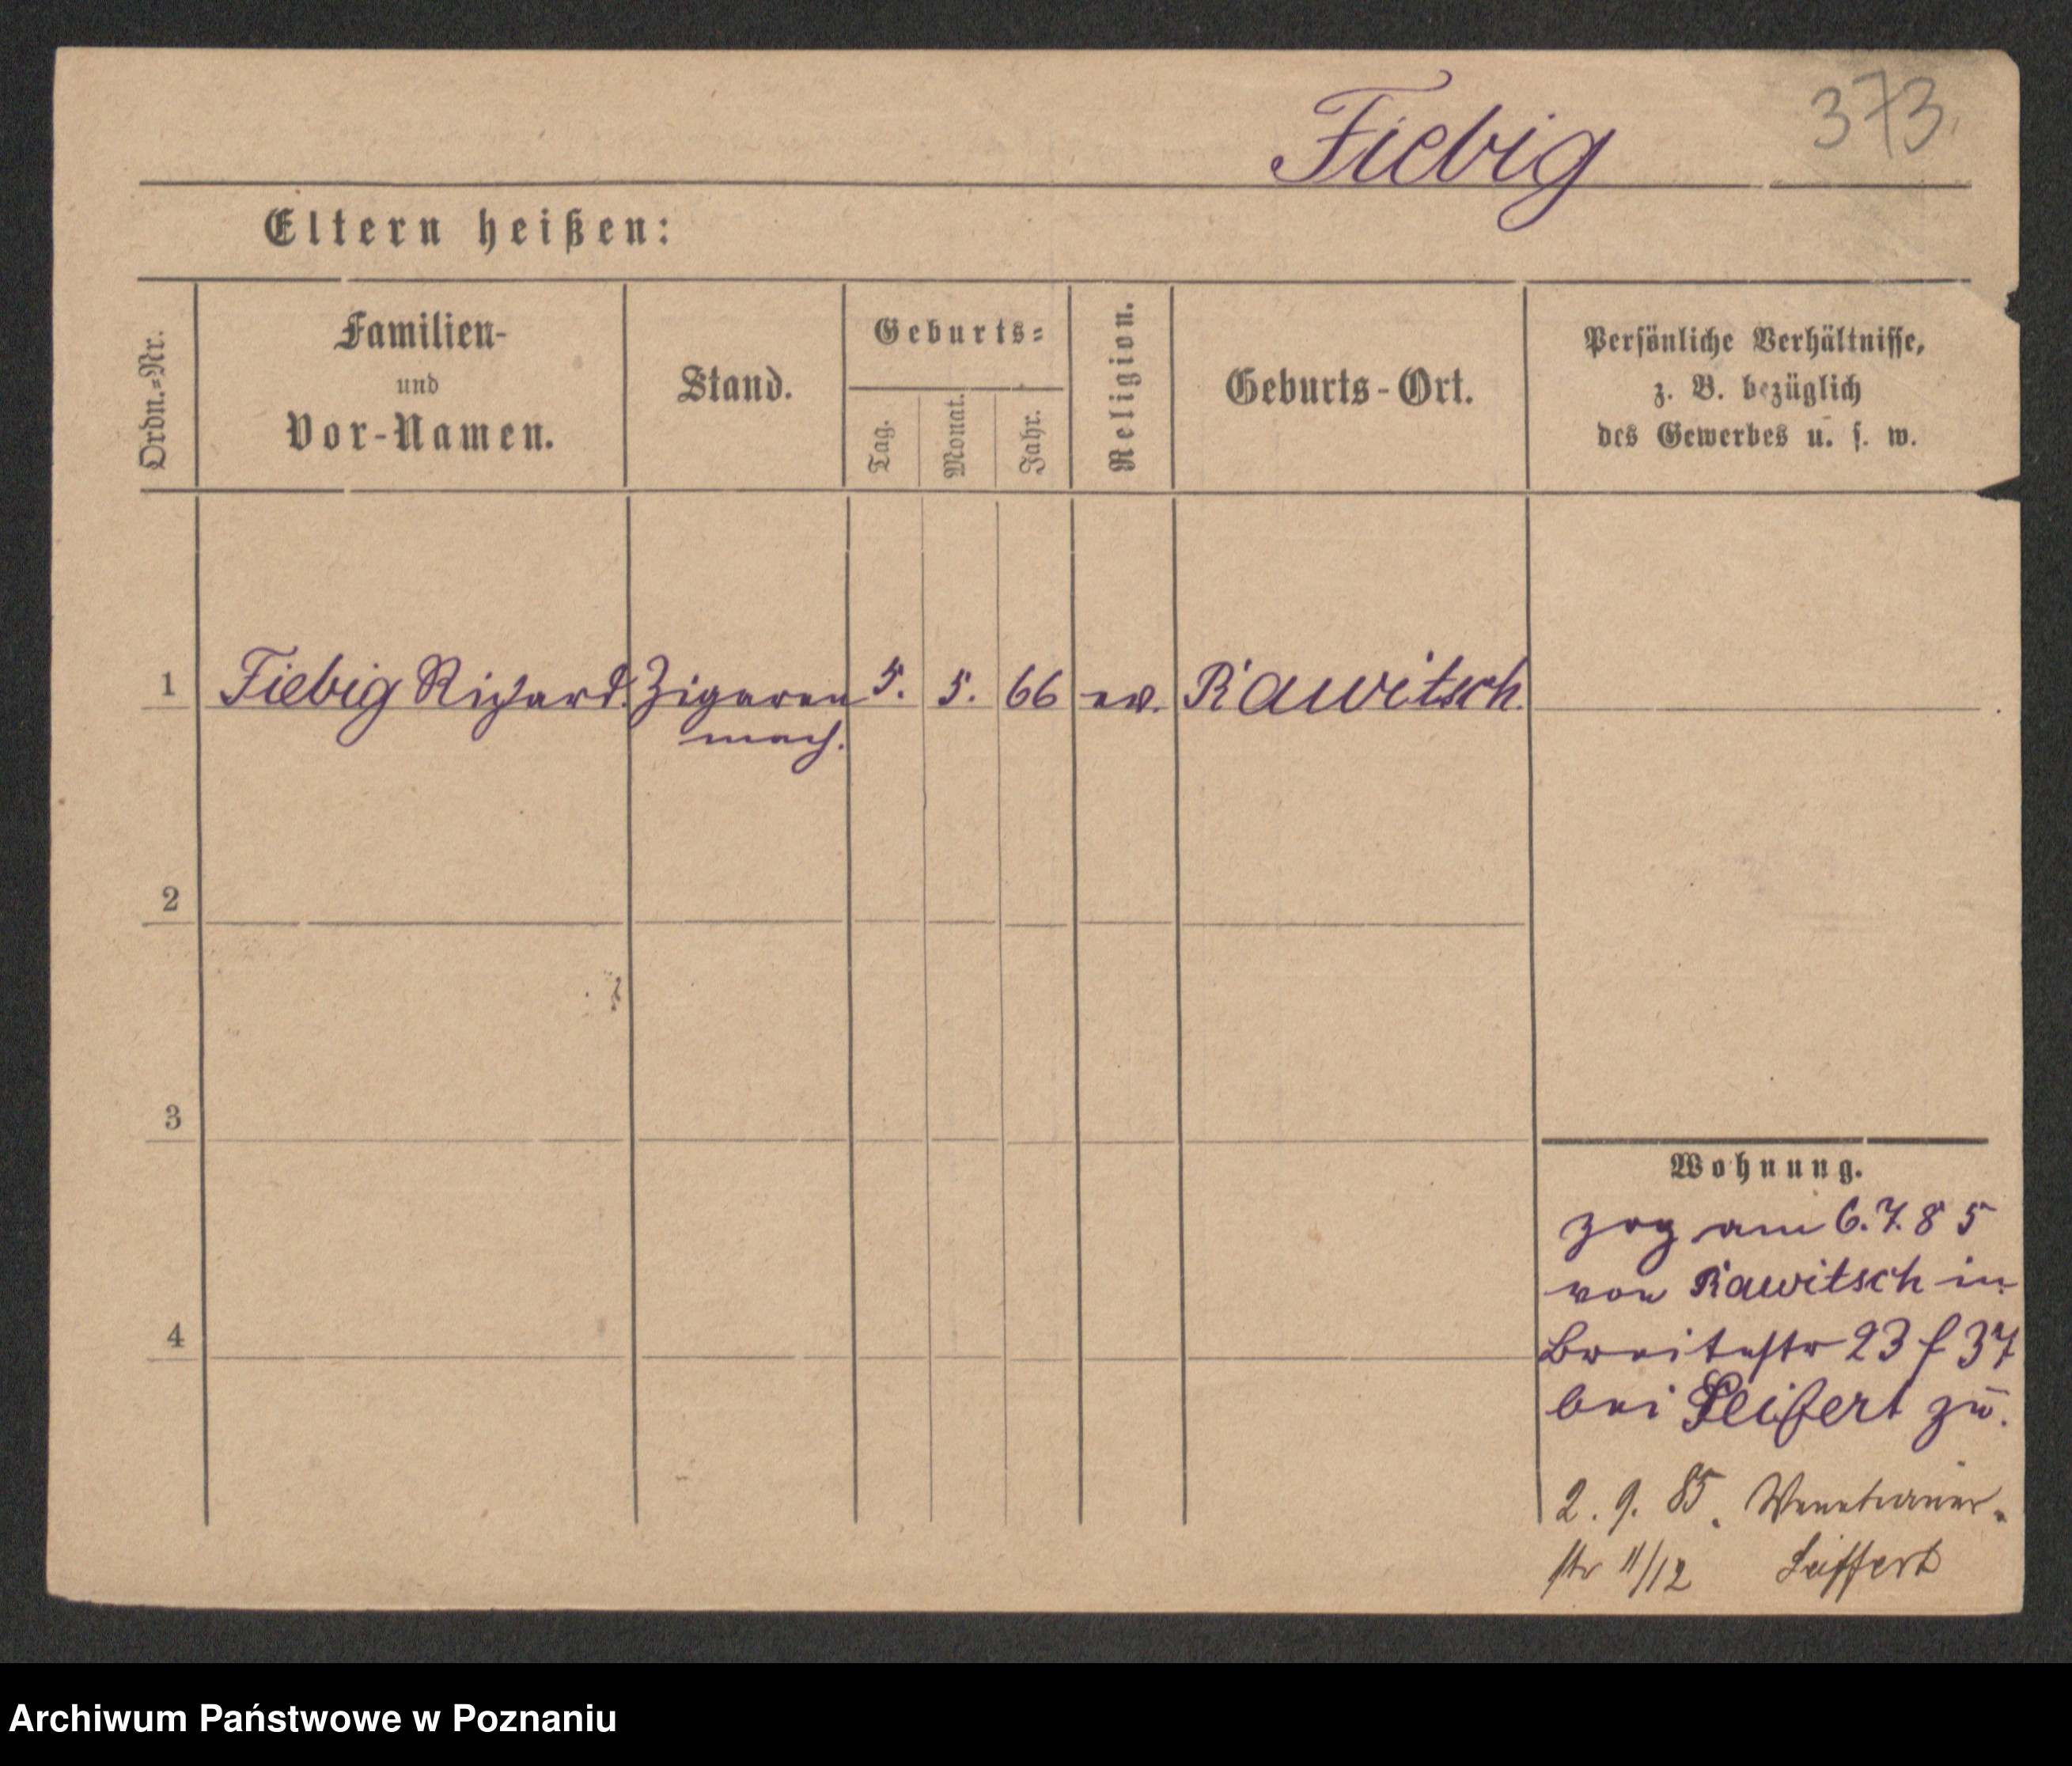 Fiebig
373.
Eltern heißen:
Ordn.=Nr.
Familien-
und
Vor-Namen.
Stand.
Geburts=
Tag.
Monat.
Jahr.
Religion.
Geburts-Ort.
Persönliche Verhältnisse,
z. B. bezüglich
des Gewerbes u. s. w.
1 Fiebig Richard. Zigarren 5. 5. 66 ev. Rawitsch.
mach.
2
3
4
Wohnung.
zog am 6.7.85
von Rawitsch in
Breitestr 23 f 37
bei Seifert zu.
2. 9. 85.
str 11/12 Seiffert
Archiwum Państwowe w Poznaniu